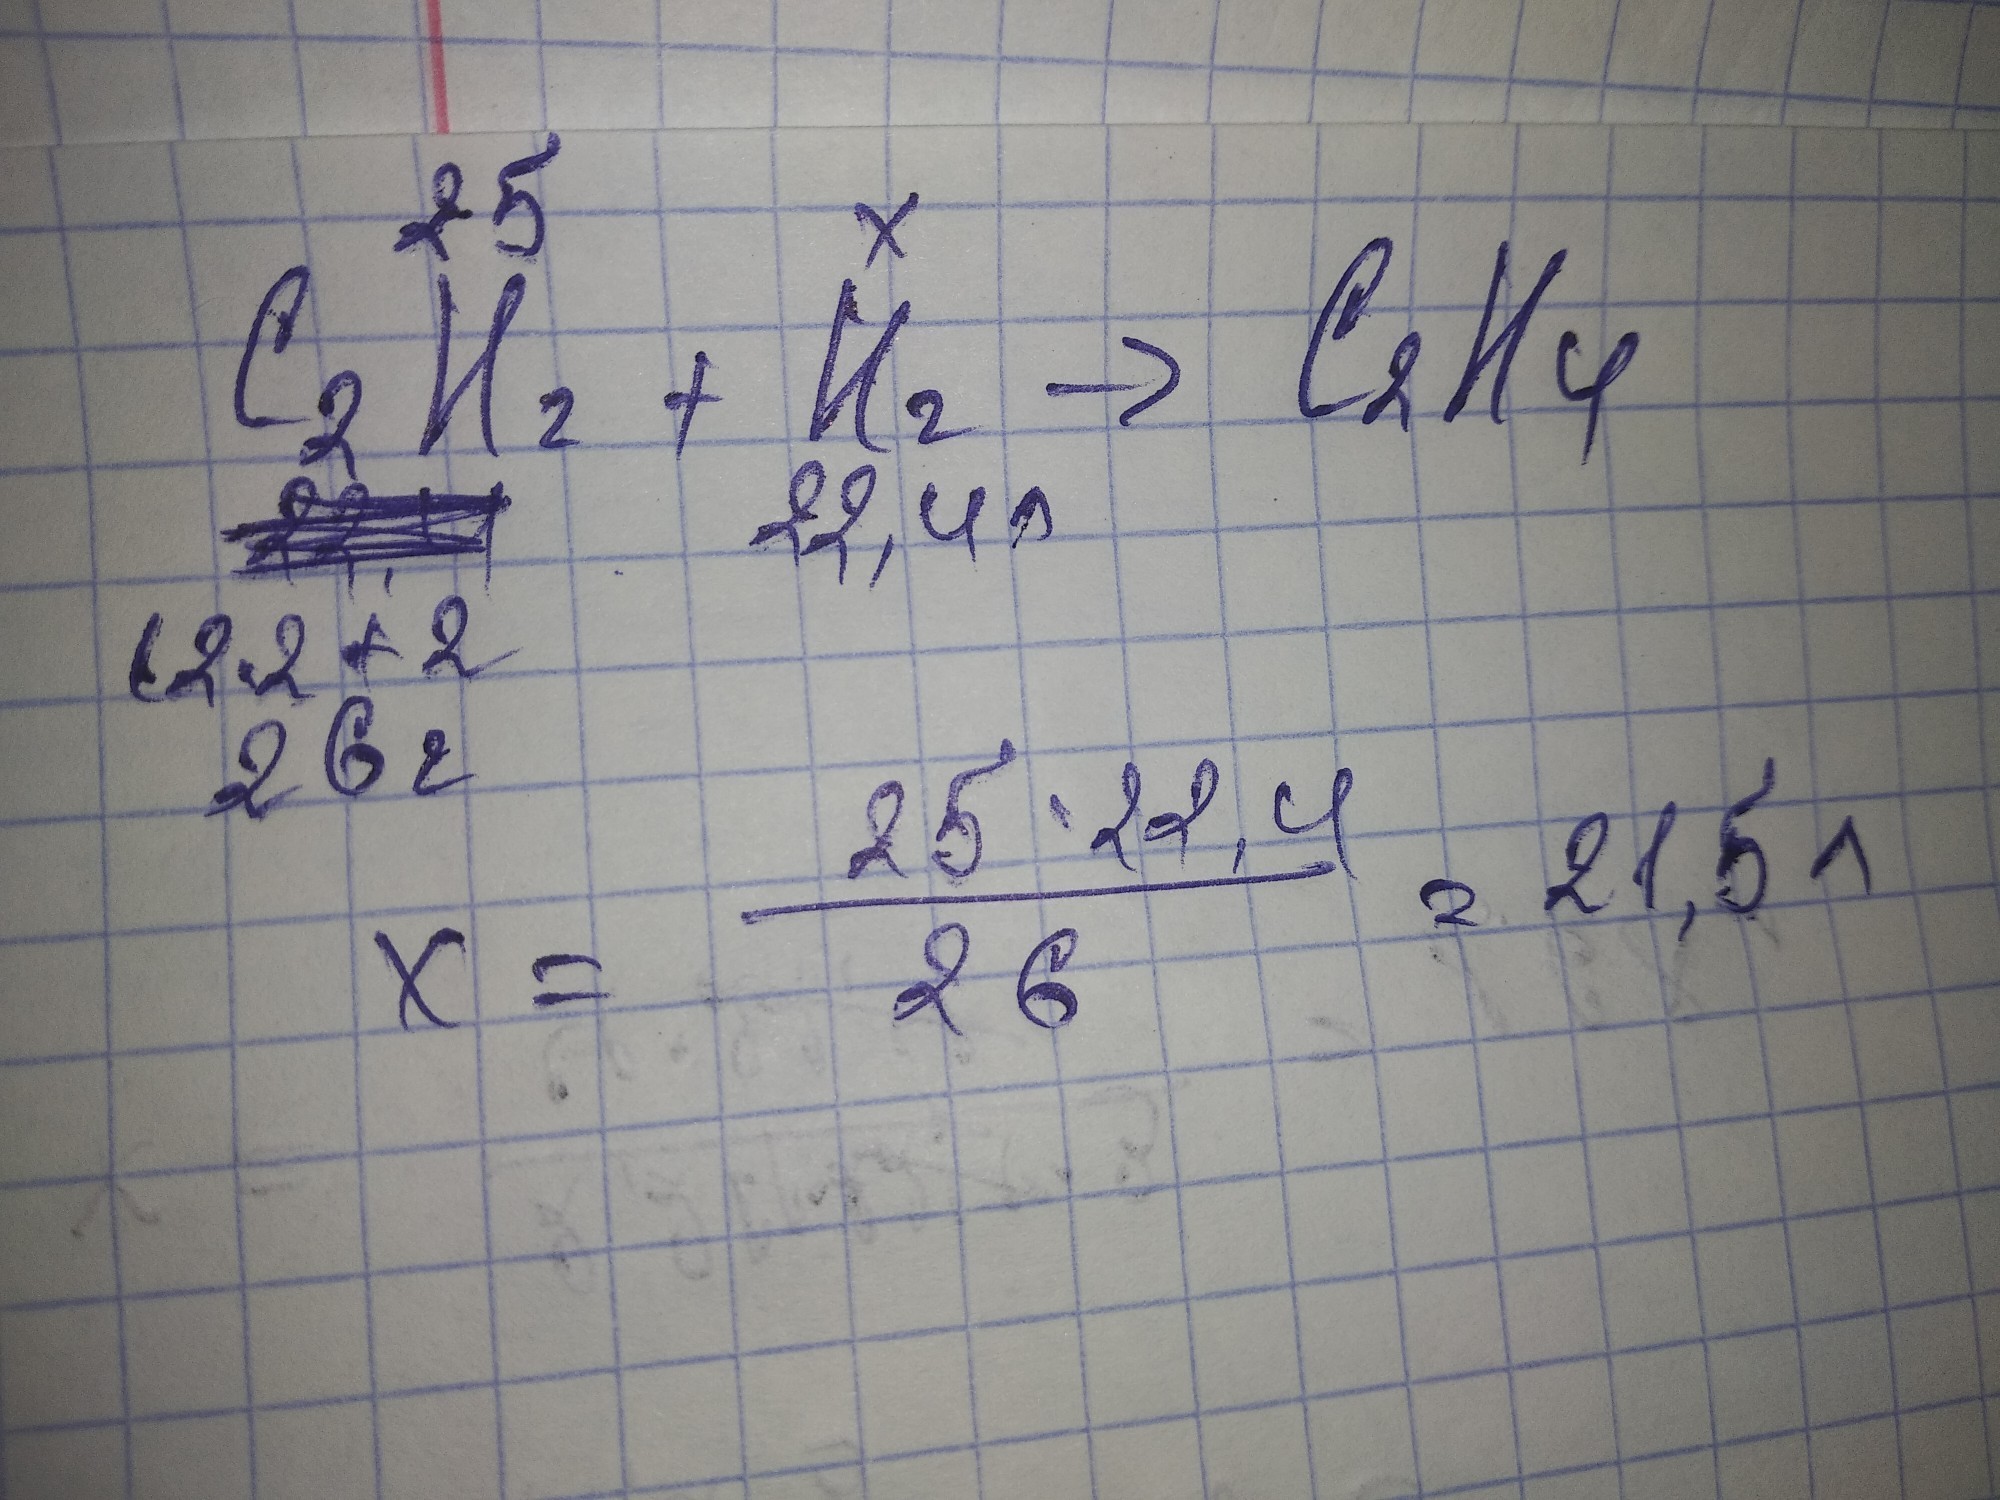 25 x
C2H2 + H2 → C2H4
22,4л
12·2+2
26г
25·22,4
x = = 21,5л
26